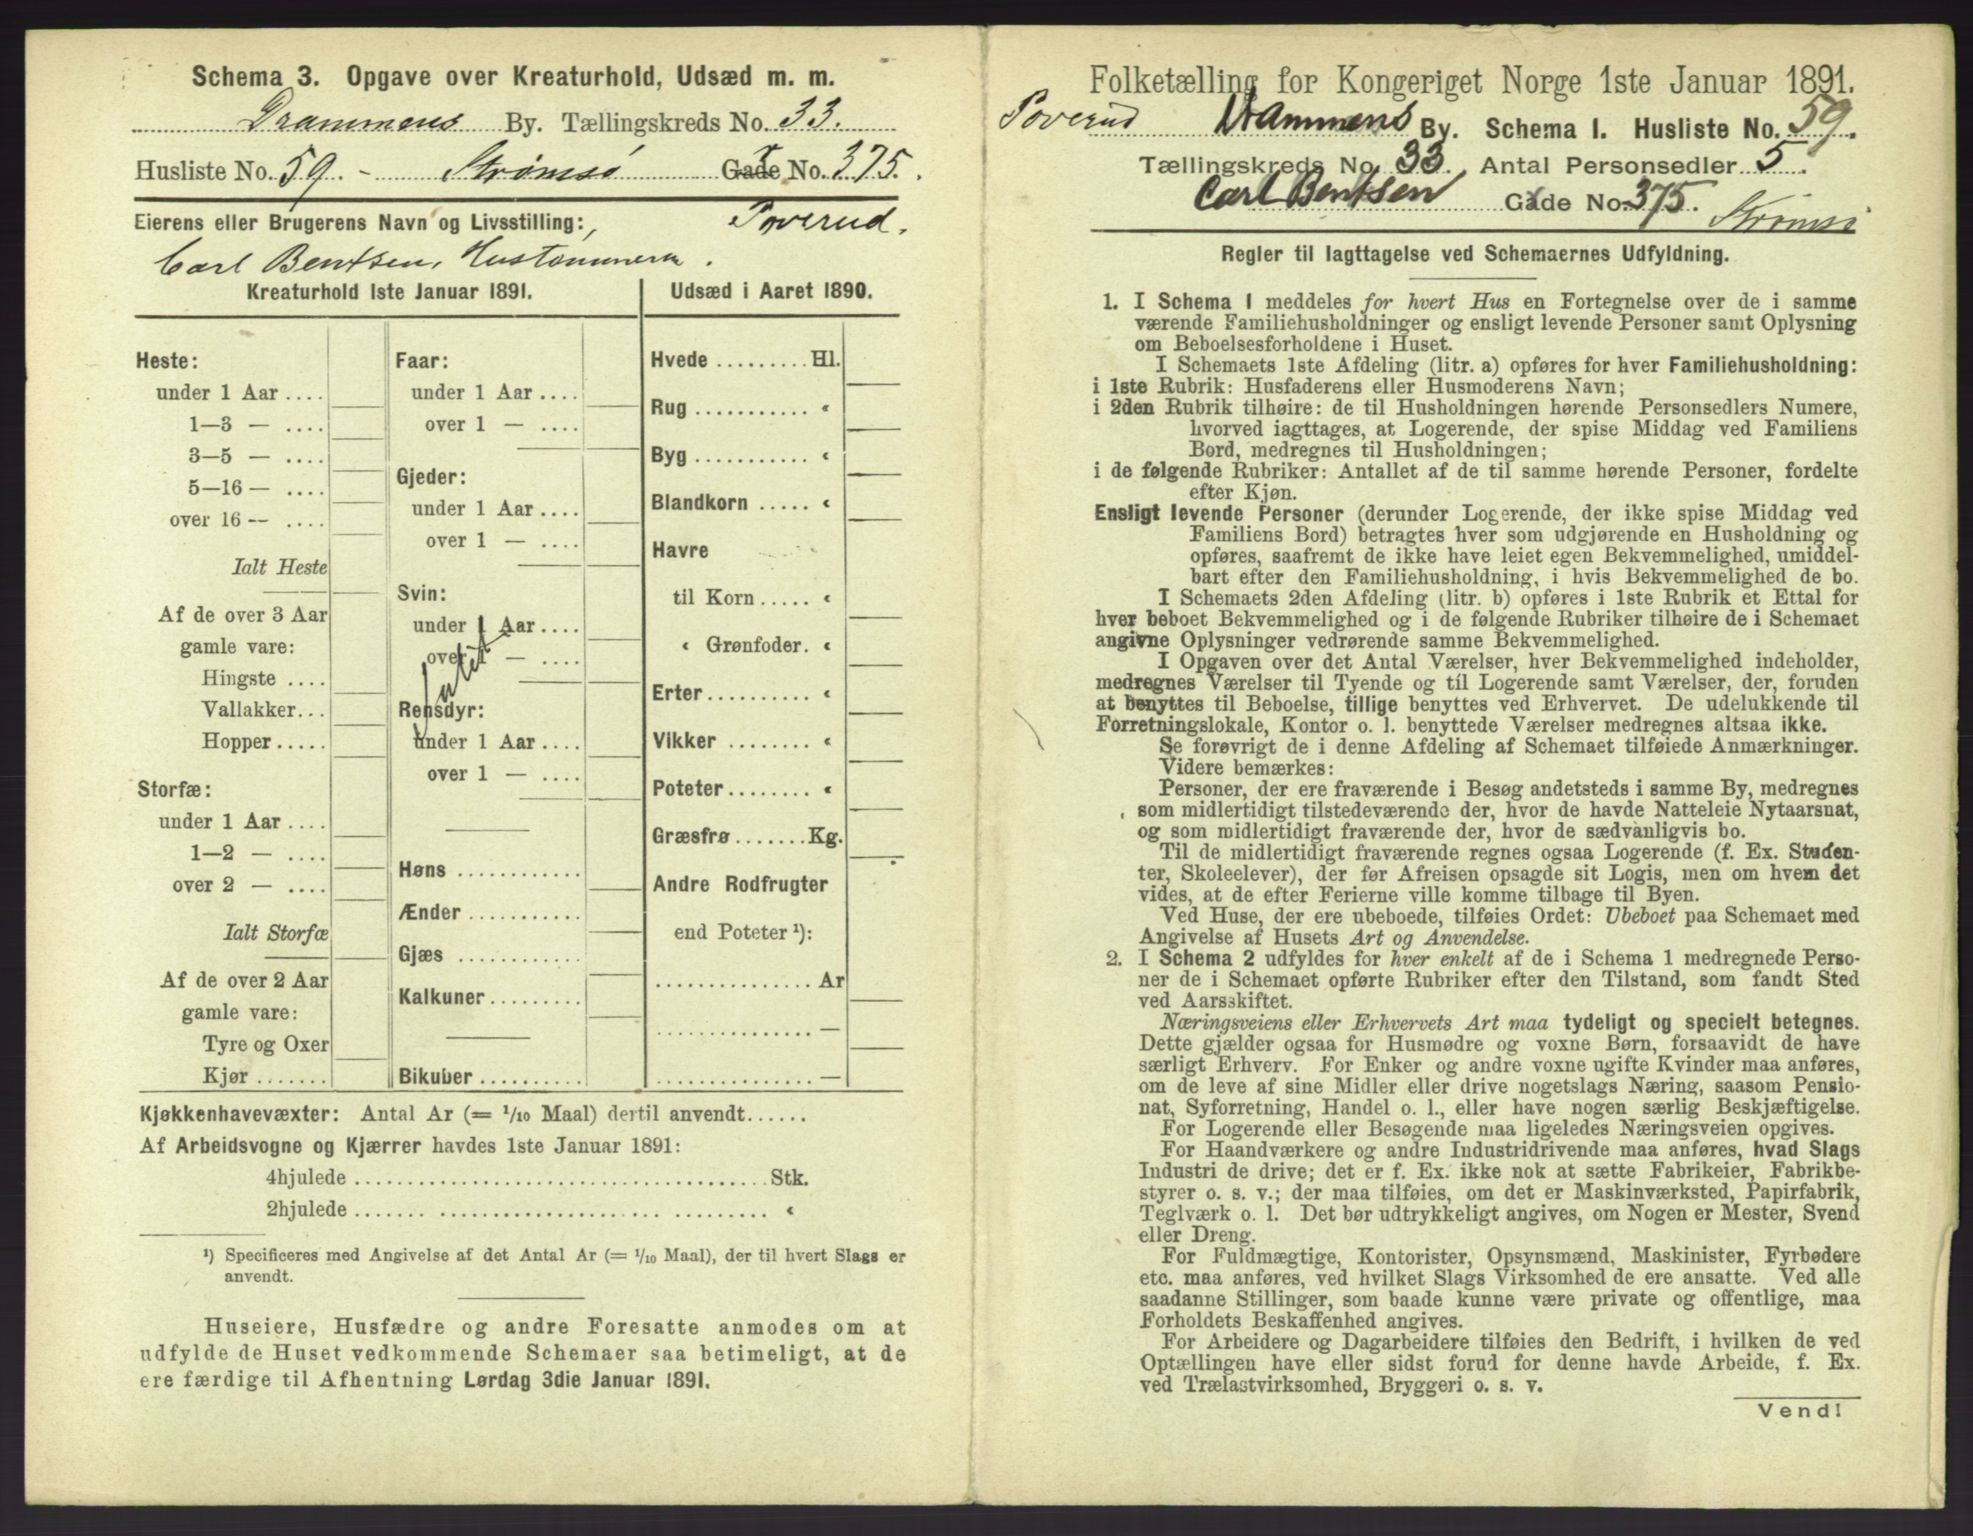 Schema 3. Opgave over Kreaturhold, Udsæd m. m.
Drammens By. Tællingskreds No. 33.
Husliste No. 59. - Strømsø Gade No. 375.
Eierens eller Brugerens Navn og Livsstilling: Poverud.
Carl Bentsen, Hustømmerm.
Kreaturhold 1ste Januar 1891.
Heste:
under 1 Aar ....
1—3 — ....
3—5 — ....
5—16 — ....
over 16 — ....
Ialt Heste
Af de over 3 Aar
gamle vare:
Hingste ....
Vallakker...
Hopper.....
Storfæ:
under 1 Aar ....
1—2 — ....
over 2 — ....
Ialt Storfæ
Af de over 2 Aar
gamle vare:
Tyre og Oxer
Kjør.......
Faar:
under 1 Aar ....
over 1 — ....
Gjeder:
under 1 Aar ....
over 1 — ....
Svin:
under 1 Aar....
over 1 — ....
Rensdyr:
under 1 Aar ....
over 1 — ....
Høns ............
Ænder ...........
Gjæs ............
Kalkuner.........
Bikuber ..........
Intet
Udsæd i Aaret 1890.
Hvede ......... Hl.
Rug ........... «
Byg ........... «
Blandkorn ..... «
Havre
til Korn ..... «
« Grønfoder. «
Erter .......... «
Vikker ........ «
Poteter ........ «
Græsfrø ....... Kg.
Andre Rodfrugter
end Poteter ¹):
............... Ar
............... —
............... —
Kjøkkenhavevæxter: Antal Ar (= 1/10 Maal) dertil anvendt......
Af Arbeidsvogne og Kjærrer havdes 1ste Januar 1891:
4hjulede ..................................... Stk.
2hjulede ..................................... «
¹) Specificeres med Angivelse af det Antal Ar (= 1/10 Maal), der til hvert Slags er
anvendt.
Huseiere, Husfædre og andre Foresatte anmodes om at
udfylde de Huset vedkommende Schemaer saa betimeligt, at de
ere færdige til Afhentning Lørdag 3die Januar 1891.
Folketælling for Kongeriget Norge 1ste Januar 1891.
Poverud Drammens By. Schema 1. Husliste No. 59.
Tællingskreds No. 33. Antal Personsedler 5.
Carl Bentsen Gade No. 375. Strømsø
Regler til Iagttagelse ved Schemaernes Udfyldning.
1. I Schema 1 meddeles for hvert Hus en Fortegnelse over de i samme
værende Familiehusholdninger og ensligt levende Personer samt Oplysning
om Beboelsesforholdene i Huset.
I Schemaets 1ste Afdeling (litr. a) opføres for hver Familiehusholdning:
i 1ste Rubrik: Husfaderens eller Husmoderens Navn;
i 2den Rubrik tilhøire: de til Husholdningen hørende Personsedlers Numere,
hvorved iagttages, at Logerende, der spise Middag ved Familiens
Bord, medregnes til Husholdningen;
i de følgende Rubriker: Antallet af de til samme hørende Personer, fordelte
efter Kjøn.
Ensligt levende Personer (derunder Logerende, der ikke spise Middag ved
Familiens Bord) betragtes hver som udgjørende en Husholdning og
opføres, saafremt de ikke have leiet egen Bekvemmelighed, umiddel-
bart efter den Familiehusholdning, i hvis Bekvemmelighed de bo.
I Schemaets 2den Afdeling (litr. b) opføres i 1ste Rubrik et Ettal for
hver beboet Bekvemmelighed og i de følgende Rubriker tilhøire de i Schemaet
angivne Oplysninger vedrørende samme Bekvemmelighed.
I Opgaven over det Antal Værelser, hver Bekvemmelighed indeholder,
medregnes Værelser til Tyende og til Logerende samt Værelser, der, foruden
at benyttes til Beboelse, tillige benyttes ved Erhvervet. De udelukkende til
Forretningslokale, Kontor o. l. benyttede Værelser medregnes altsaa ikke.
Se forøvrigt de i denne Afdeling af Schemaet tilføiede Anmærkninger.
Videre bemærkes:
Personer, der ere fraværende i Besøg andetsteds i samme By, medregnes
som midlertidigt tilstedeværende der, hvor de havde Natteleie Nytaarsnat,
og som midlertidigt fraværende der, hvor de sædvanligvis bo.
Til de midlertidigt fraværende regnes ogsaa Logerende (f. Ex. Studen-
ter, Skoleelever), der før Afreisen opsagde sit Logis, men om hvem det
vides, at de efter Ferierne ville komme tilbage til Byen.
Ved Huse, der ere ubeboede, tilføies Ordet: Ubeboet paa Schemaet med
Angivelse af Husets Art og Anvendelse.
2. I Schema 2 udfyldes for hver enkelt af de i Schema 1 medregnede Perso-
ner de i Schemaet opførte Rubriker efter den Tilstand, som fandt Sted
ved Aarsskiftet.
Næringsveiens eller Erhvervets Art maa tydeligt og specielt betegnes.
Dette gjælder ogsaa for Husmødre og voxne Børn, forsaavidt de have
særligt Erhverv. For Enker og andre voxne ugifte Kvinder maa anføres,
om de leve af sine Midler eller drive nogetslags Næring, saasom Pensio-
nat, Syforretning, Handel o. l., eller have nogen særlig Beskjæftigelse.
For Logerende eller Besøgende maa ligeledes Næringsveien opgives.
For Haandværkere og andre Industridrivende maa anføres, hvad Slags
Industri de drive; det er f. Ex. ikke nok at sætte Fabrikeier, Fabrikbe-
styrer o. s. v.; der maa tilføies, om det er Maskinværksted, Papirfabrik,
Teglværk o. l. Det bør udtrykkeligt angives, om Nogen er Mester, Svend
eller Dreng.
For Fuldmægtige, Kontorister, Opsynsmænd, Maskinister, Fyrbødere
etc. maa anføres, ved hvilket Slags Virksomhed de ere ansatte. Ved alle
saadanne Stillinger, som baade kunne være private og offentlige, maa
Forholdets Beskaffenhed angives.
For Arbeidere og Dagarbeidere tilføies den Bedrift, i hvilken de ved
Optællingen have eller sidst forud for denne havde Arbeide, f. Ex.
ved Trælastvirksomhed, Bryggeri o. s. v.
Vend!